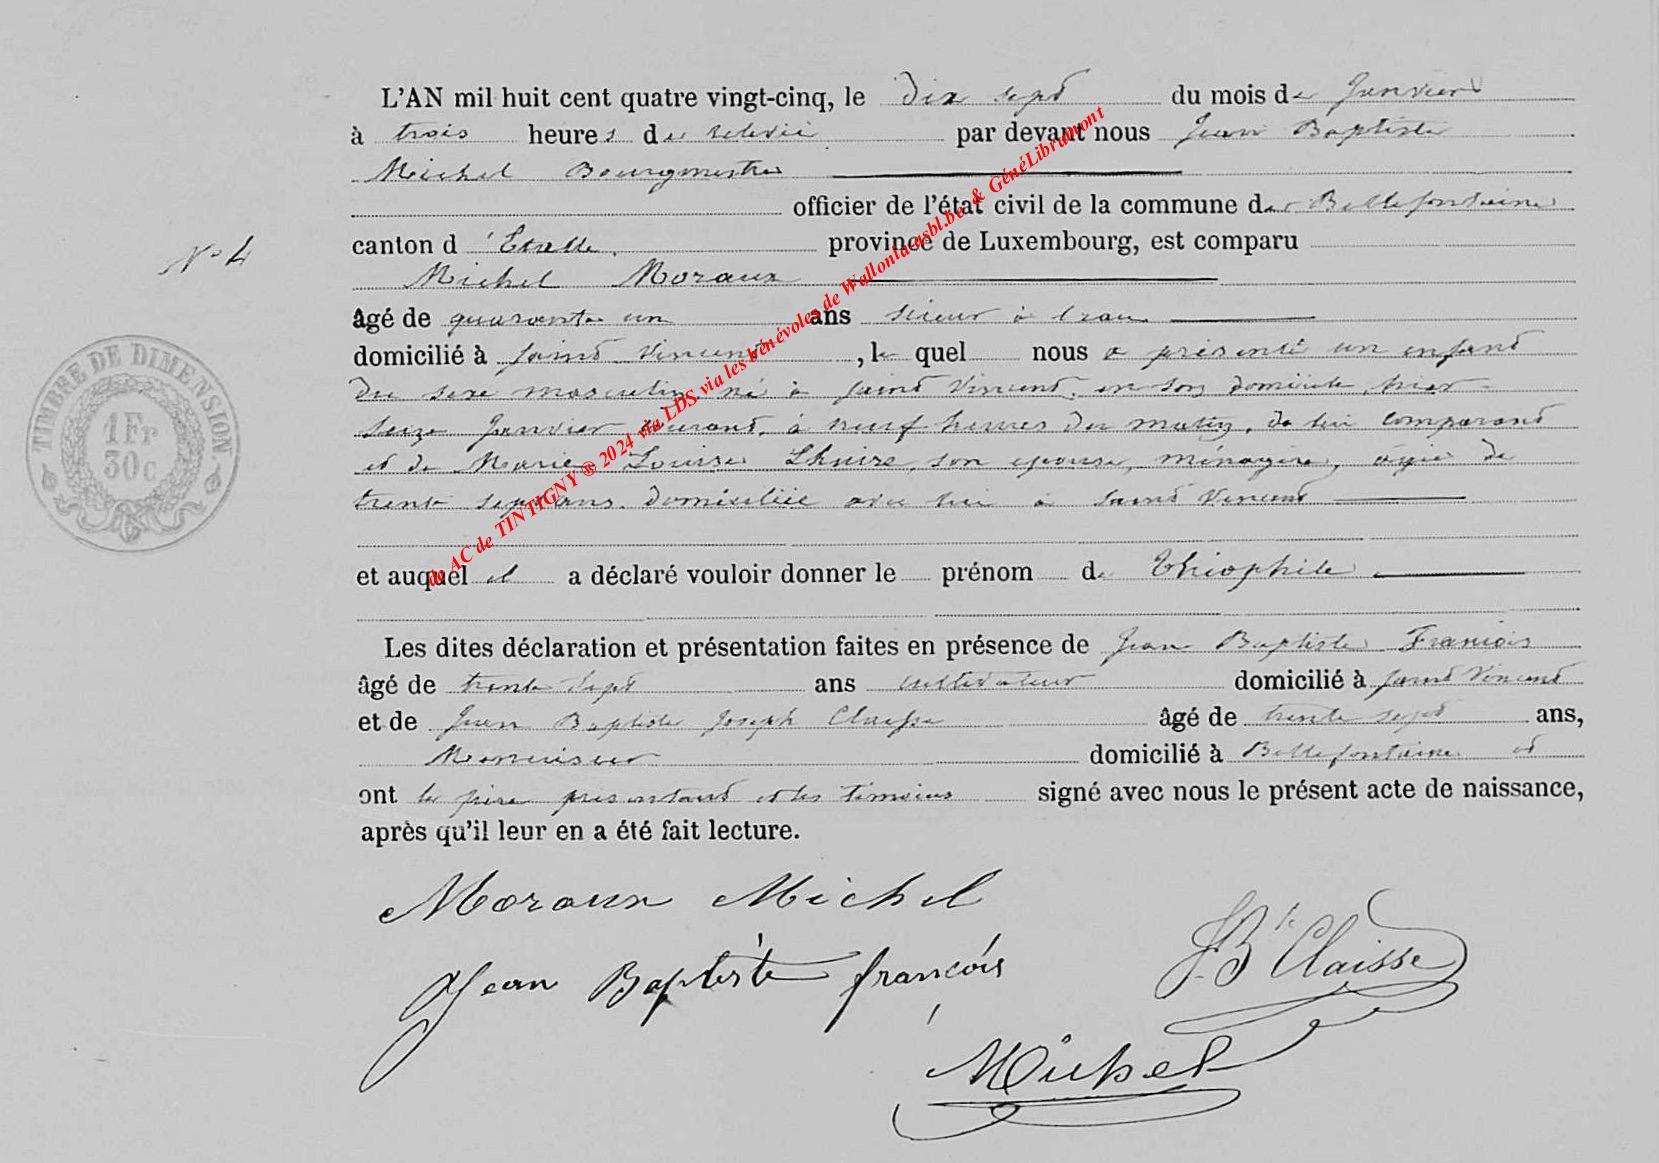 L'AN mil huit cent quatre vingt-cinq, le dix sept du mois de Janvier
à trois heures de relevée par devant nous Jean Baptiste
Michel Bourgmestre
officier de l'état civil de la commune de Bellefontaine
N° 4
canton d'Etalle, province de Luxembourg, est comparu
Michel Moraux
âgé de quarante un ans scieur à bras
domicilié à Saint Vincent, lequel nous a présenté un enfant
du sexe masculin, né à Saint Vincent, en son domicile, hier
seize Janvier courant, à neuf heures du matin, de lui comparant
et de Marie Louise Lhuire, son épouse, ménagère, agée de
trente sept ans domiciliée avec lui à Saint Vincent
et auquel il a déclaré vouloir donner le prénom de Théophile
Les dites déclaration et présentation faites en présence de Jean Baptiste François
âgé de trente sept ans cultivateur domicilié à Saint Vincent
et de Jean Baptiste Joseph Claisse âgé de trente sept ans,
Menuisier domicilié à Bellefontaine et
ont le père présentant et les témoins signé avec nous le présent acte de naissance,
après qu'il leur en a été fait lecture.
Moraux Michel
J Bte Claisse
Jean Baptiste françois
Michel
TIMBRE DE DIMENSION
1 Fr
30c
de AC de TINTIGNY ® 2024 via LDS via les bénévoles de Wallonia-asbl.be & GénéLibramont